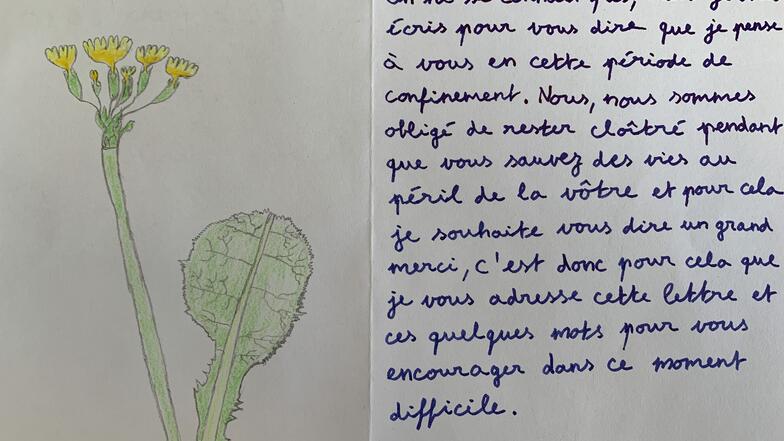 écris pour vous dire que je pense
à vous en cette période de
confinement. Nous, nous sommes
obligé de rester cloîtré pendant
que vous sauvez des vies au
péril de la vôtre et pour cela
je souhaite vous dire un grand
merci, c'est donc pour cela que
je vous adresse cette lettre et
ces quelques mots pour vous
encourager dans ce moment
difficile.